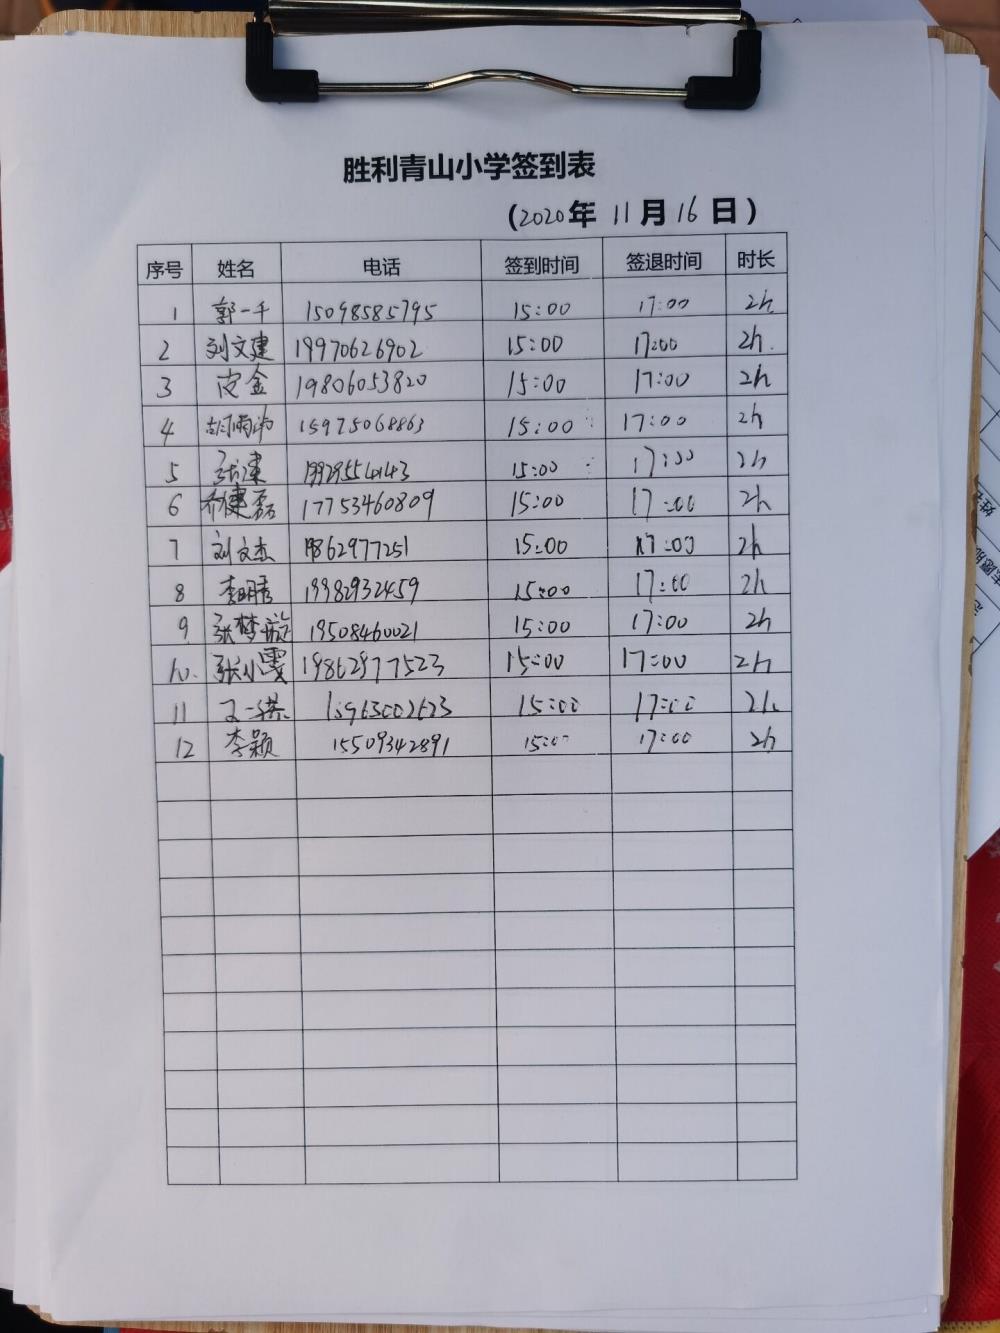 胜利青山小学签到表
(2020年 11月16日)
序号 姓名 电话 签到时间 签退时间 时长
1 郭一千 15098585795 15:00 17:00 2h
2 刘文建 19970626902 15:00 17:00 2h.
3 皮金 19806053820 15:00 17:00 2h
4 胡雨沛 15975068863 15:00 17:00 2h
5 张建 15:00 17:00 2h
6 乔健磊 17753460809 15:00 17:00 2h
7 刘文杰 19862977251 15:00 17:00 2h
8 李明秀 19982932459 15:00 17:00 2h
9 张梦旋 19508460021 15:00 17:00 2h
10. 张小雯 19862977523 15:00 17:00 2h
11 15:00 17:00 2h
12 李颖 15509342891 15:00 17:00 2h